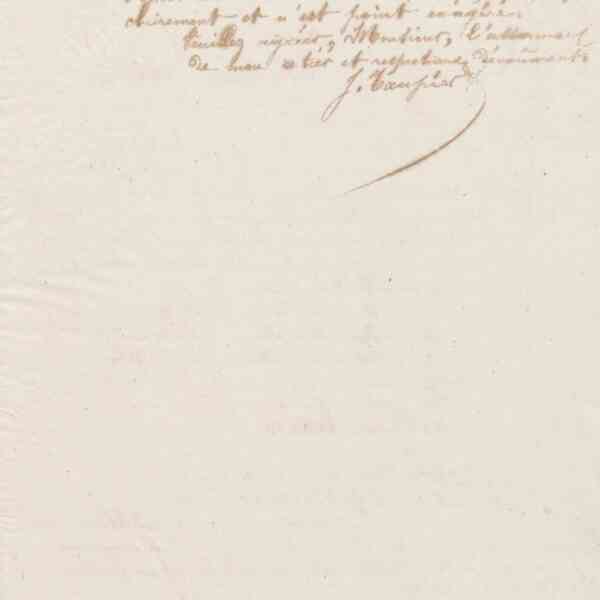 clairement et n'est point exagéré.
Veuillez agréer, Monsieur, l'
de mon entier et respectueux dévouement.
J.